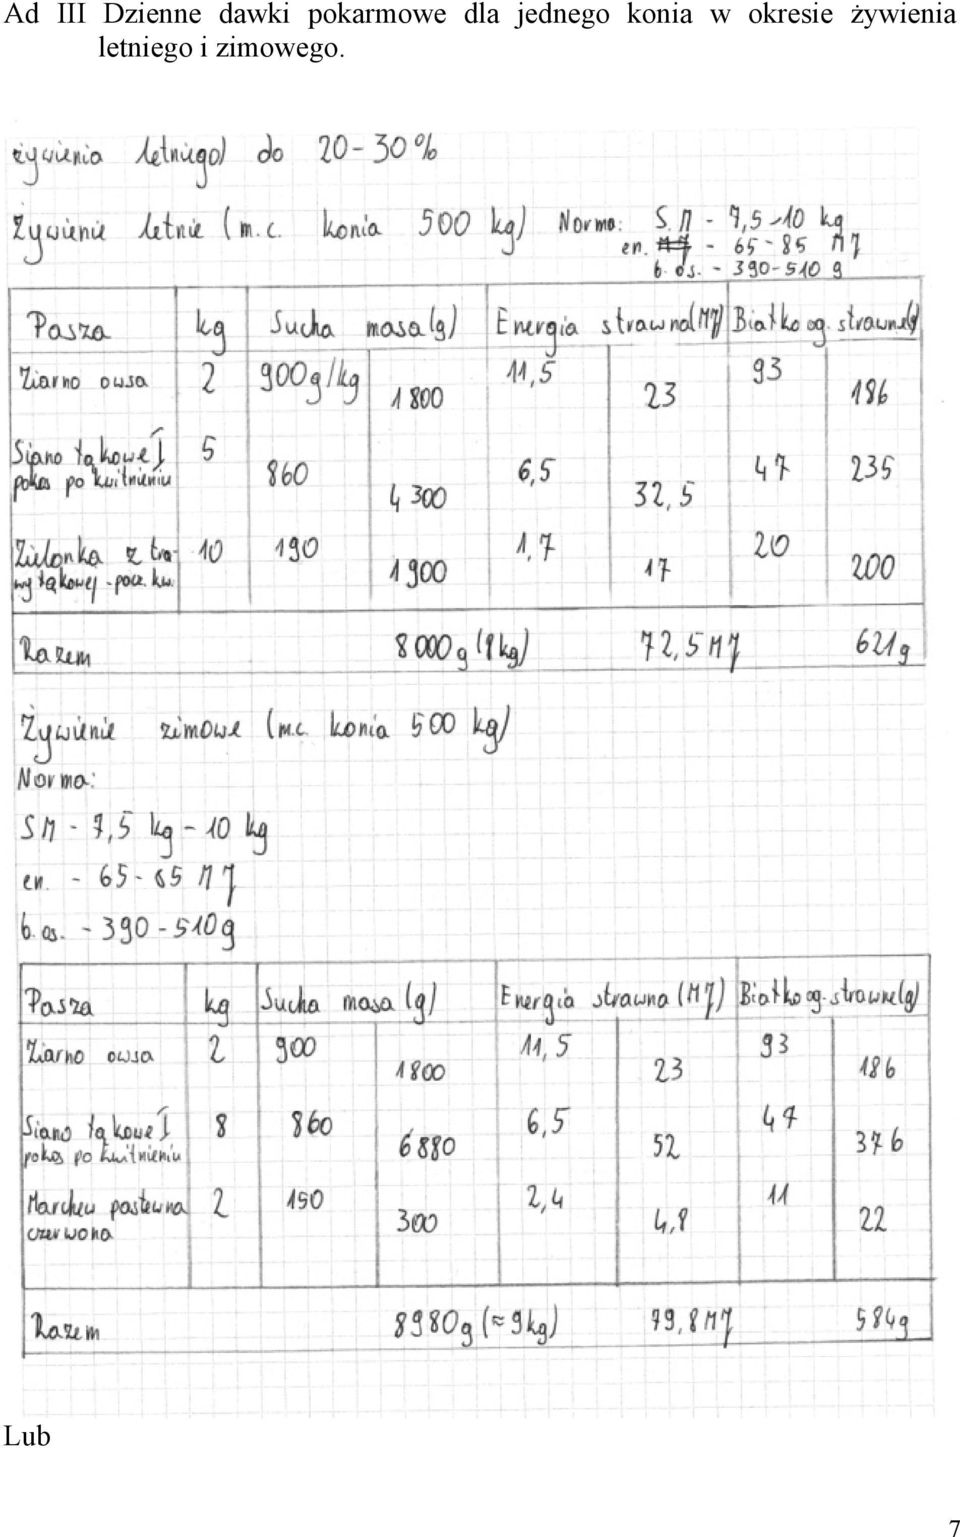 Ad III Dzienne dawki pokarmowe dla jednego konia w okresie żywienia
letniego i zimowego.
żywienia letniego) do 20-30%
Żywienie letnie (m.c. konia 500 kg) Norma: S.M - 7,5-10 kg
en. MJ - 65-85 MJ
b. os. - 390-510 g
Pasza kg Sucha masa (g) Energia strawna (MJ) Białko og. strawne (g)
Ziarno owsa 2 900g/kg 1800 11,5 23 93 186
Siano łąkowe I 5 860 4300 6,5 32,5 47 235
pokos po kwitnieniu
Zielonka z tra- 10 190 1900 1,7 17 20 200
wy łąkowej - pocz. kw.
Razem 8000g (8kg) 72,5 MJ 621g
Żywienie zimowe (m.c. konia 500 kg)
Norma:
SM - 7,5 kg - 10 kg
en. - 65-85 MJ
b. os. - 390-510g
Pasza kg Sucha masa (g) Energia strawna (MJ) Białko og. strawne (g)
Ziarno owsa 2 900 1800 11,5 23 93 186
Siano łąkowe I 8 860 6880 6,5 52 47 376
pokos po kwitnieniu
Marchew pastewna 2 150 300 2,4 4,8 11 22
czerwona
Razem 8980g (≈9kg) 79,8 MJ 584g
Lub
7